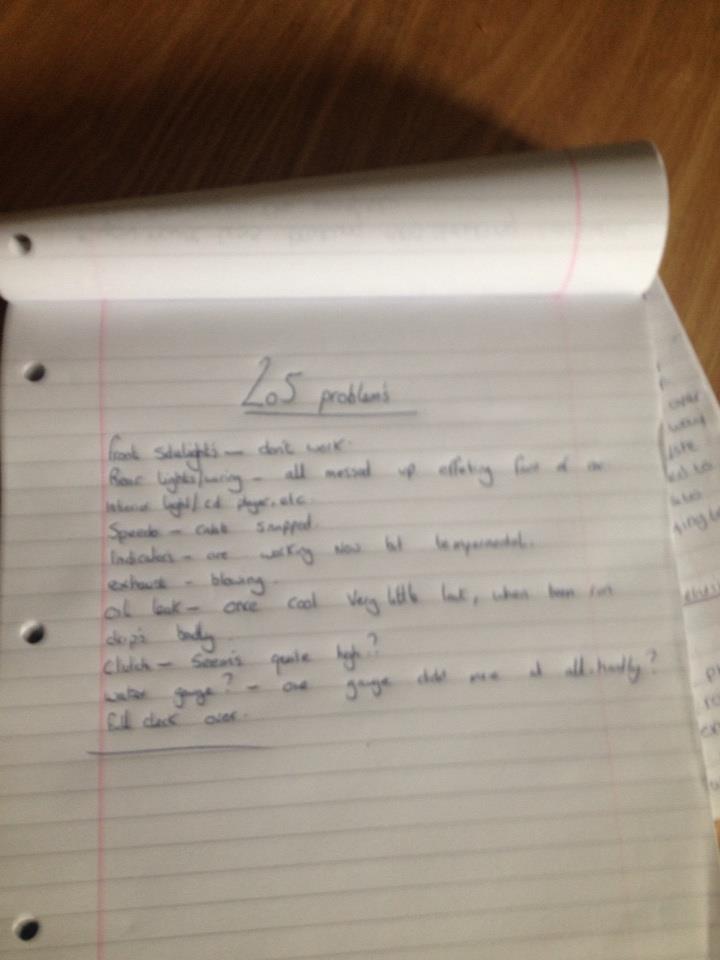 205 problems
front sidelights - don't work.
Rear lights/wiring - all messed up effeting front of car
interior light/cd player, etc.
Speedo - cable snapped.
Indicators - are working now but temperamental.
exhaust - blowing.
Oil leak - once cool very little leak, when been run
drip's badly.
Clutch - Seem's quite high?
water gauge? - one gauge didnt move at all. hardly?
full check over.
over
want